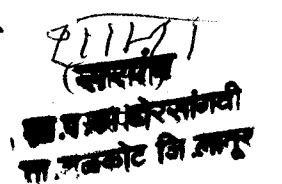 (सरपंच)
ग्रा.पं.का. ढोरसांगवी
ता.जळकोट जि.लातूर